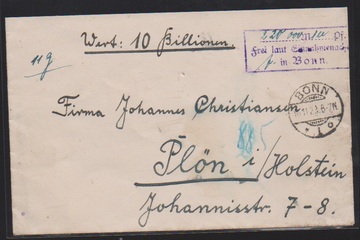 Wert: 10 Billionen.
Frei laut Einnahmenachw.
in Bonn.
11 g
BONN
Firma Johannes Christiansen
Plön i/Holstein
Johannisstr. 7-8.